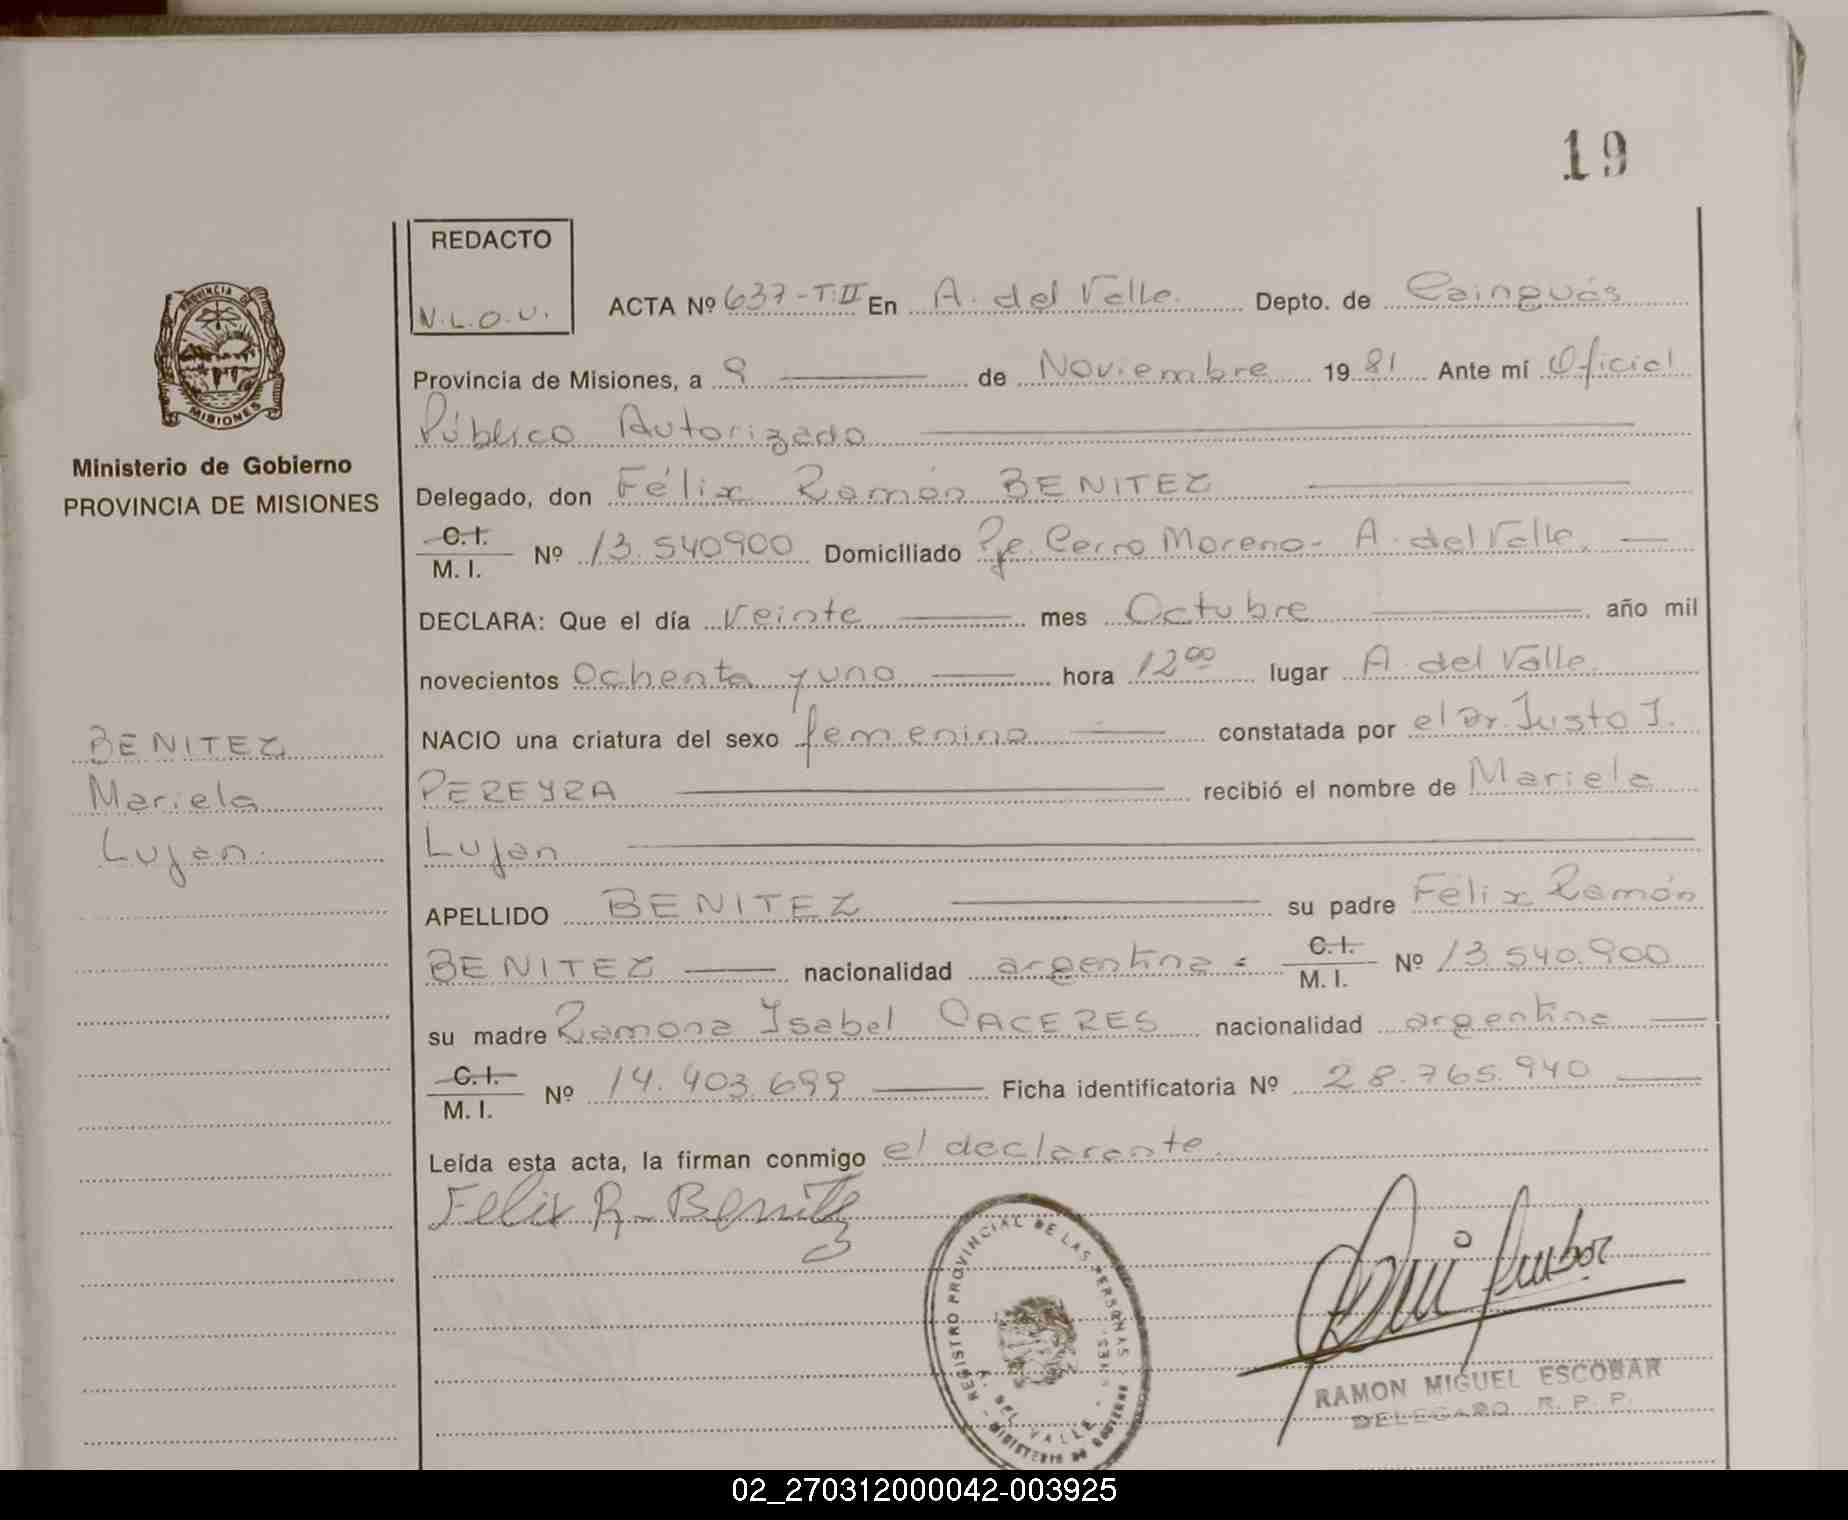 19
REDACTO
N.L.O.U.
ACTA Nº 637-T:II En A. del Valle. Depto. de Cainguás
Provincia de Misiones, a 9 de Noviembre 1981 Ante mí Oficial
Público Autorizado
Ministerio de Gobierno
PROVINCIA DE MISIONES
Delegado, don Félix Ramón BENITEZ
C.I.
M. I. Nº 13.540900 Domiciliado Pje. Cerro Moreno- A. del Valle.
DECLARA: Que el día Veinte mes Octubre año mil
novecientos Ochenta y uno hora 12⁰⁰ lugar A. del Valle.
BENITEZ
Mariela
Lujan.
NACIO una criatura del sexo femenino constatada por el Dr. Justo J.
PEREYRA recibió el nombre de Mariela
Lujan
APELLIDO BENITEZ su padre Félix Ramón
BENITEZ nacionalidad argentina C.I.
M. I. Nº 13.540.900
su madre Ramona Isabel CACERES nacionalidad argentina
C.I.
M. I. Nº 14.403.699 Ficha identificatoria Nº 28.765.940
Leída esta acta, la firman conmigo el declarante.
Felix R. Benitez
REGISTRO PROVINCIAL DE LAS PERSONAS
A. DEL VALLE
MINISTERIO DE GOBIERNO
RAMON MIGUEL ESCOBAR
DELEGADO R. P. P.
PROVINCIA DE
MISIONES
02_270312000042-003925